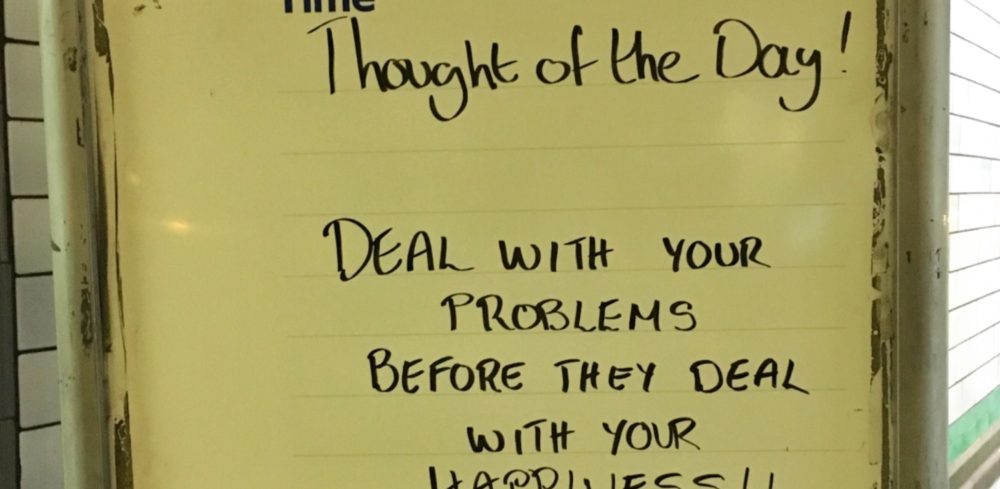 Time
Thought of the Day!
DEAL WITH YOUR
PROBLEMS
BEFORE THEY DEAL
WITH YOUR
HAPPINESS!!